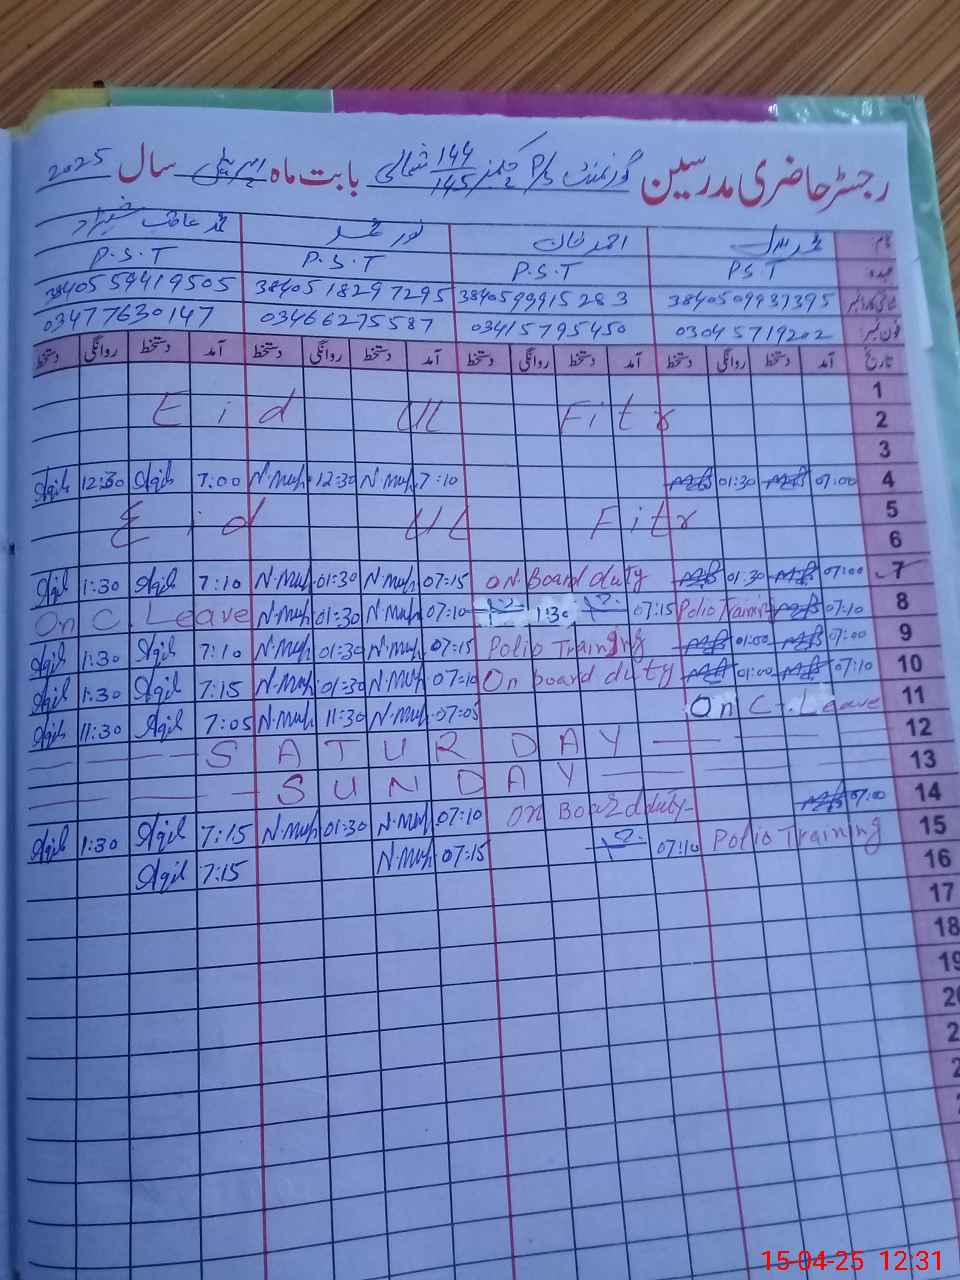 رجسٹر حاضری مدرسین گورنمنٹ P/S چکنمبر 144/145 شمالی بابت ماہ اپریل سال 2025
نام احمد خان
عہدہ P.S.T P.S.T P.S.T P.S.T
3840509937395 3840599915283 3840518297295 3840559419505
فون نمبر 03045719202 03415795450 03466275587 03477630147
تاریخ آمد دستخط روانگی دستخط آمد دستخط روانگی دستخط آمد دستخط روانگی دستخط آمد دستخط روانگی دستخط
1
Eid UL Fitr 2
3
Aqil 12:30 Aqil 7:00 N.Muh 12:30 N.Muh 7:10 01:30 07:00 4
Eid UL Fitr 5
6
Aqil 1:30 Aqil 7:10 N.Muh 01:30 N.Muh 07:15 On Board duty 01:30 07:00 7
On C. Leave N.Muh 01:30 N.Muh 07:10 1:30 07:15 Polio Training 07:10 8
Aqil 1:30 Aqil 7:10 N.Muh 01:30 N.Muh 07:15 Polio Training 01:00 07:00 9
Aqil 1:30 Aqil 7:15 N.Muh 01:30 N.Muh 07:10 On board duty 01:00 07:10 10
Aqil 11:30 Aqil 7:05 N.Muh 11:30 N.Muh 07:05 On C. Leave 11
SATURDAY 12
SUNDAY 13
Aqil 1:30 Aqil 7:15 N.Muh 01:30 N.Muh 07:10 On Board duty 07:00 14
Aqil 7:15 N.Muh 07:15 07:10 Polio Training 15
16
17
18
19
15-04-25 12:31